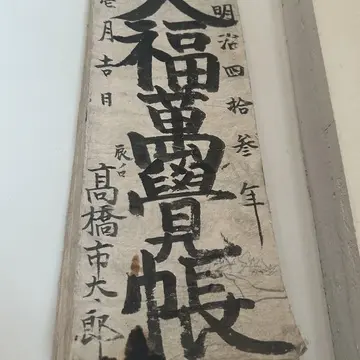 明治四拾参年
大福萬覺帳
壱月吉日
辰口
高橋市太郎